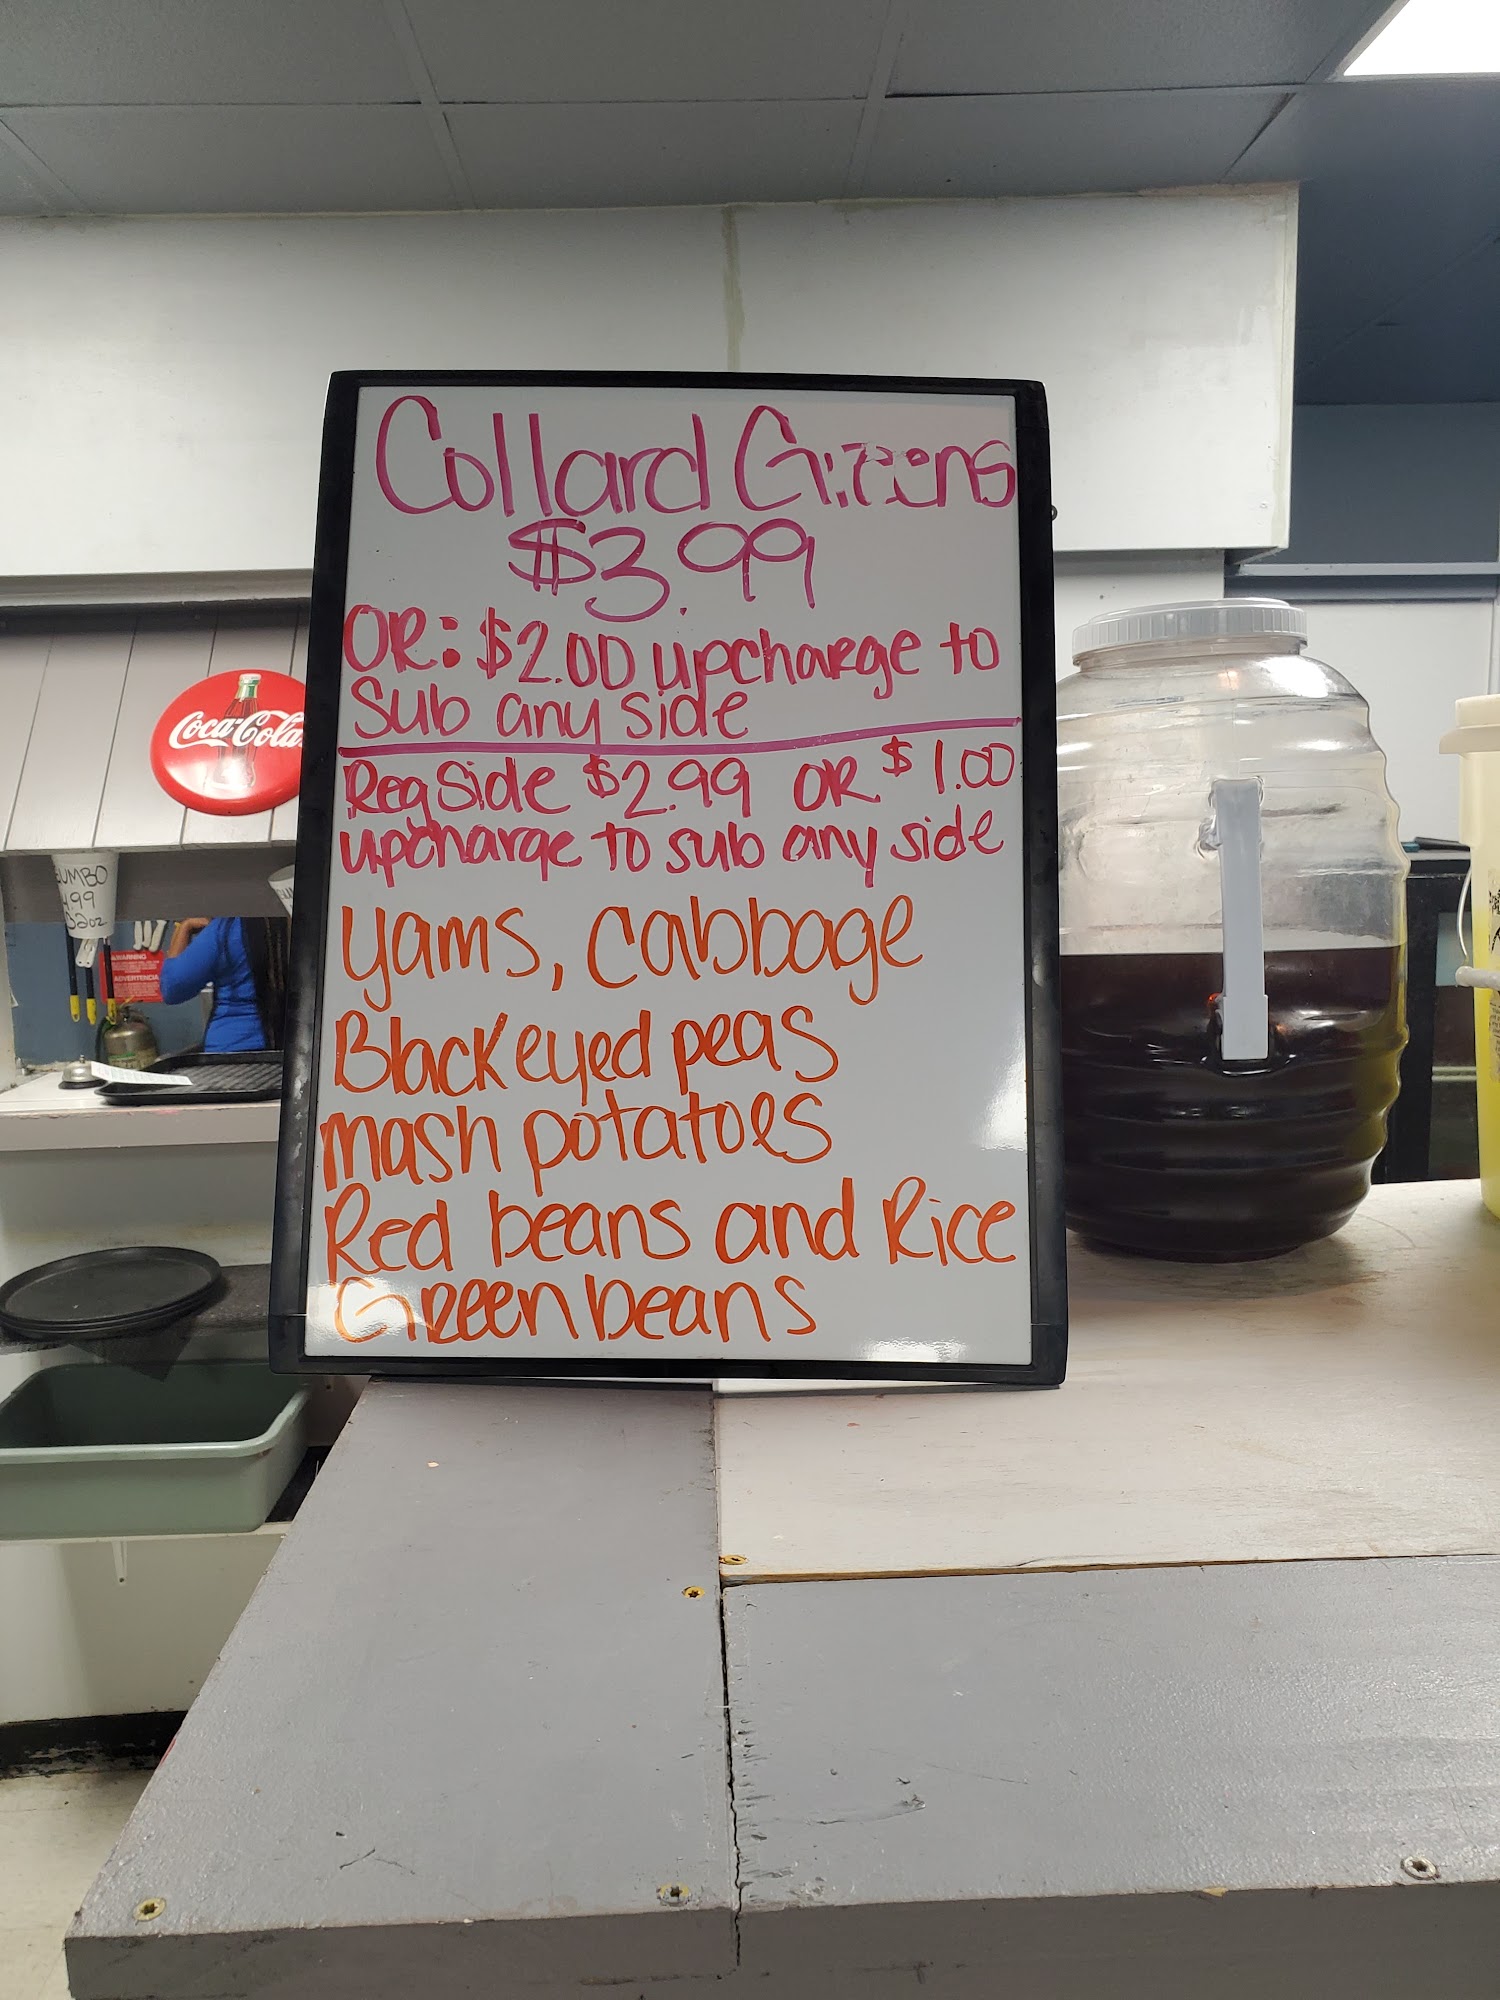 Collard Greens
$3.99
OR: $2.00 upcharge to
Sub any side
Reg Side $2.99 OR $1.00
upcharge to sub any side
yams, cabbage
Black eyed peas
mash potatoes
Red beans and Rice
Green beans
Coca-Cola
WARNING
ADVERTENCIA